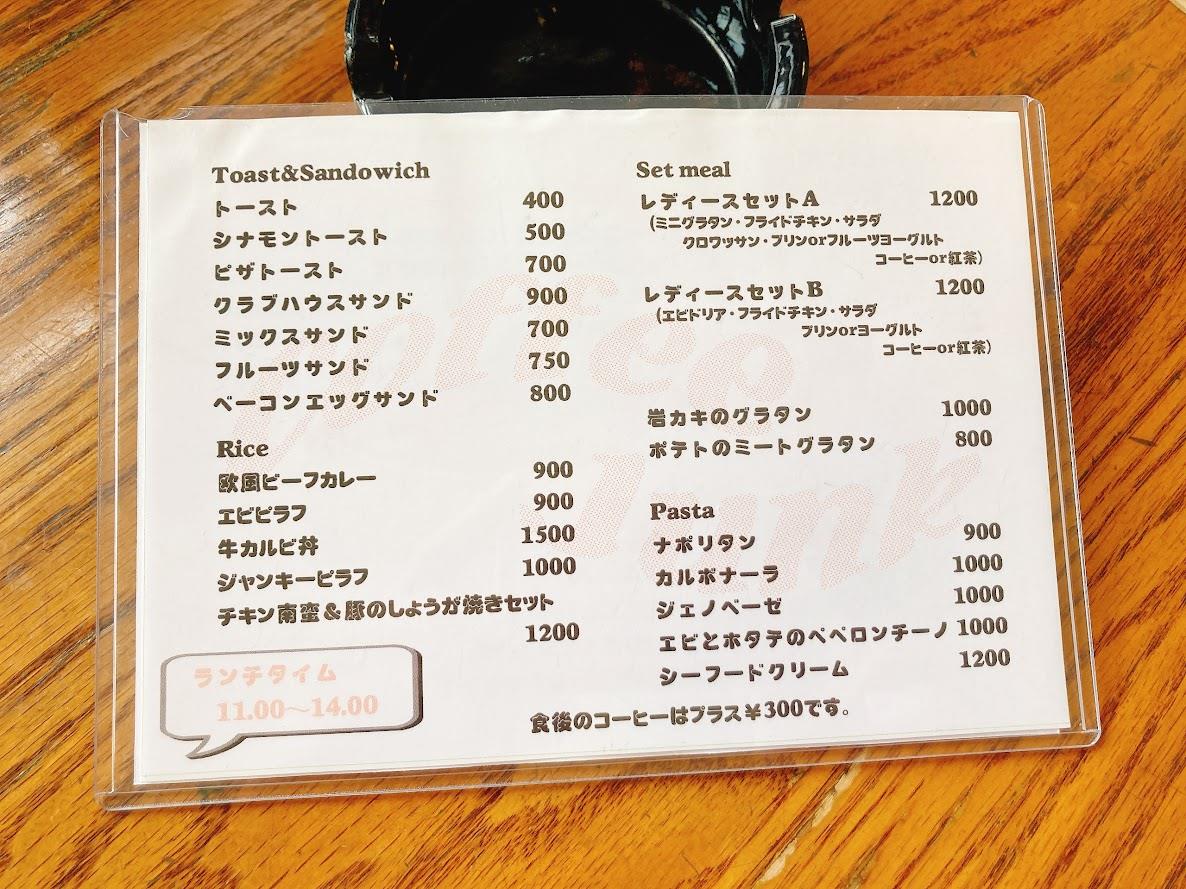 Toast&Sandowich
トースト 400
シナモントースト 500
ピザトースト 700
クラブハウスサンド 900
ミックスサンド 700
フルーツサンド 750
ベーコンエッグサンド 800
Rice
欧風ビーフカレー 900
エビピラフ 900
牛カルビ丼 1500
ジャンキーピラフ 1000
チキン南蛮&豚のしょうが焼きセット
1200
ランチタイム
11.00～14.00
Set meal
レディースセットA 1200
(ミニグラタン・フライドチキン・サラダ
クロワッサン・プリンorフルーツヨーグルト
コーヒーor紅茶)
レディースセットB 1200
(エビドリア・フライドチキン・サラダ
プリンorヨーグルト
コーヒーor紅茶)
岩カキのグラタン 1000
ポテトのミートグラタン 800
Pasta
ナポリタン 900
カルボナーラ 1000
ジェノベーゼ 1000
エビとホタテのペペロンチーノ 1000
シーフードクリーム 1200
食後のコーヒーはプラス¥300です。